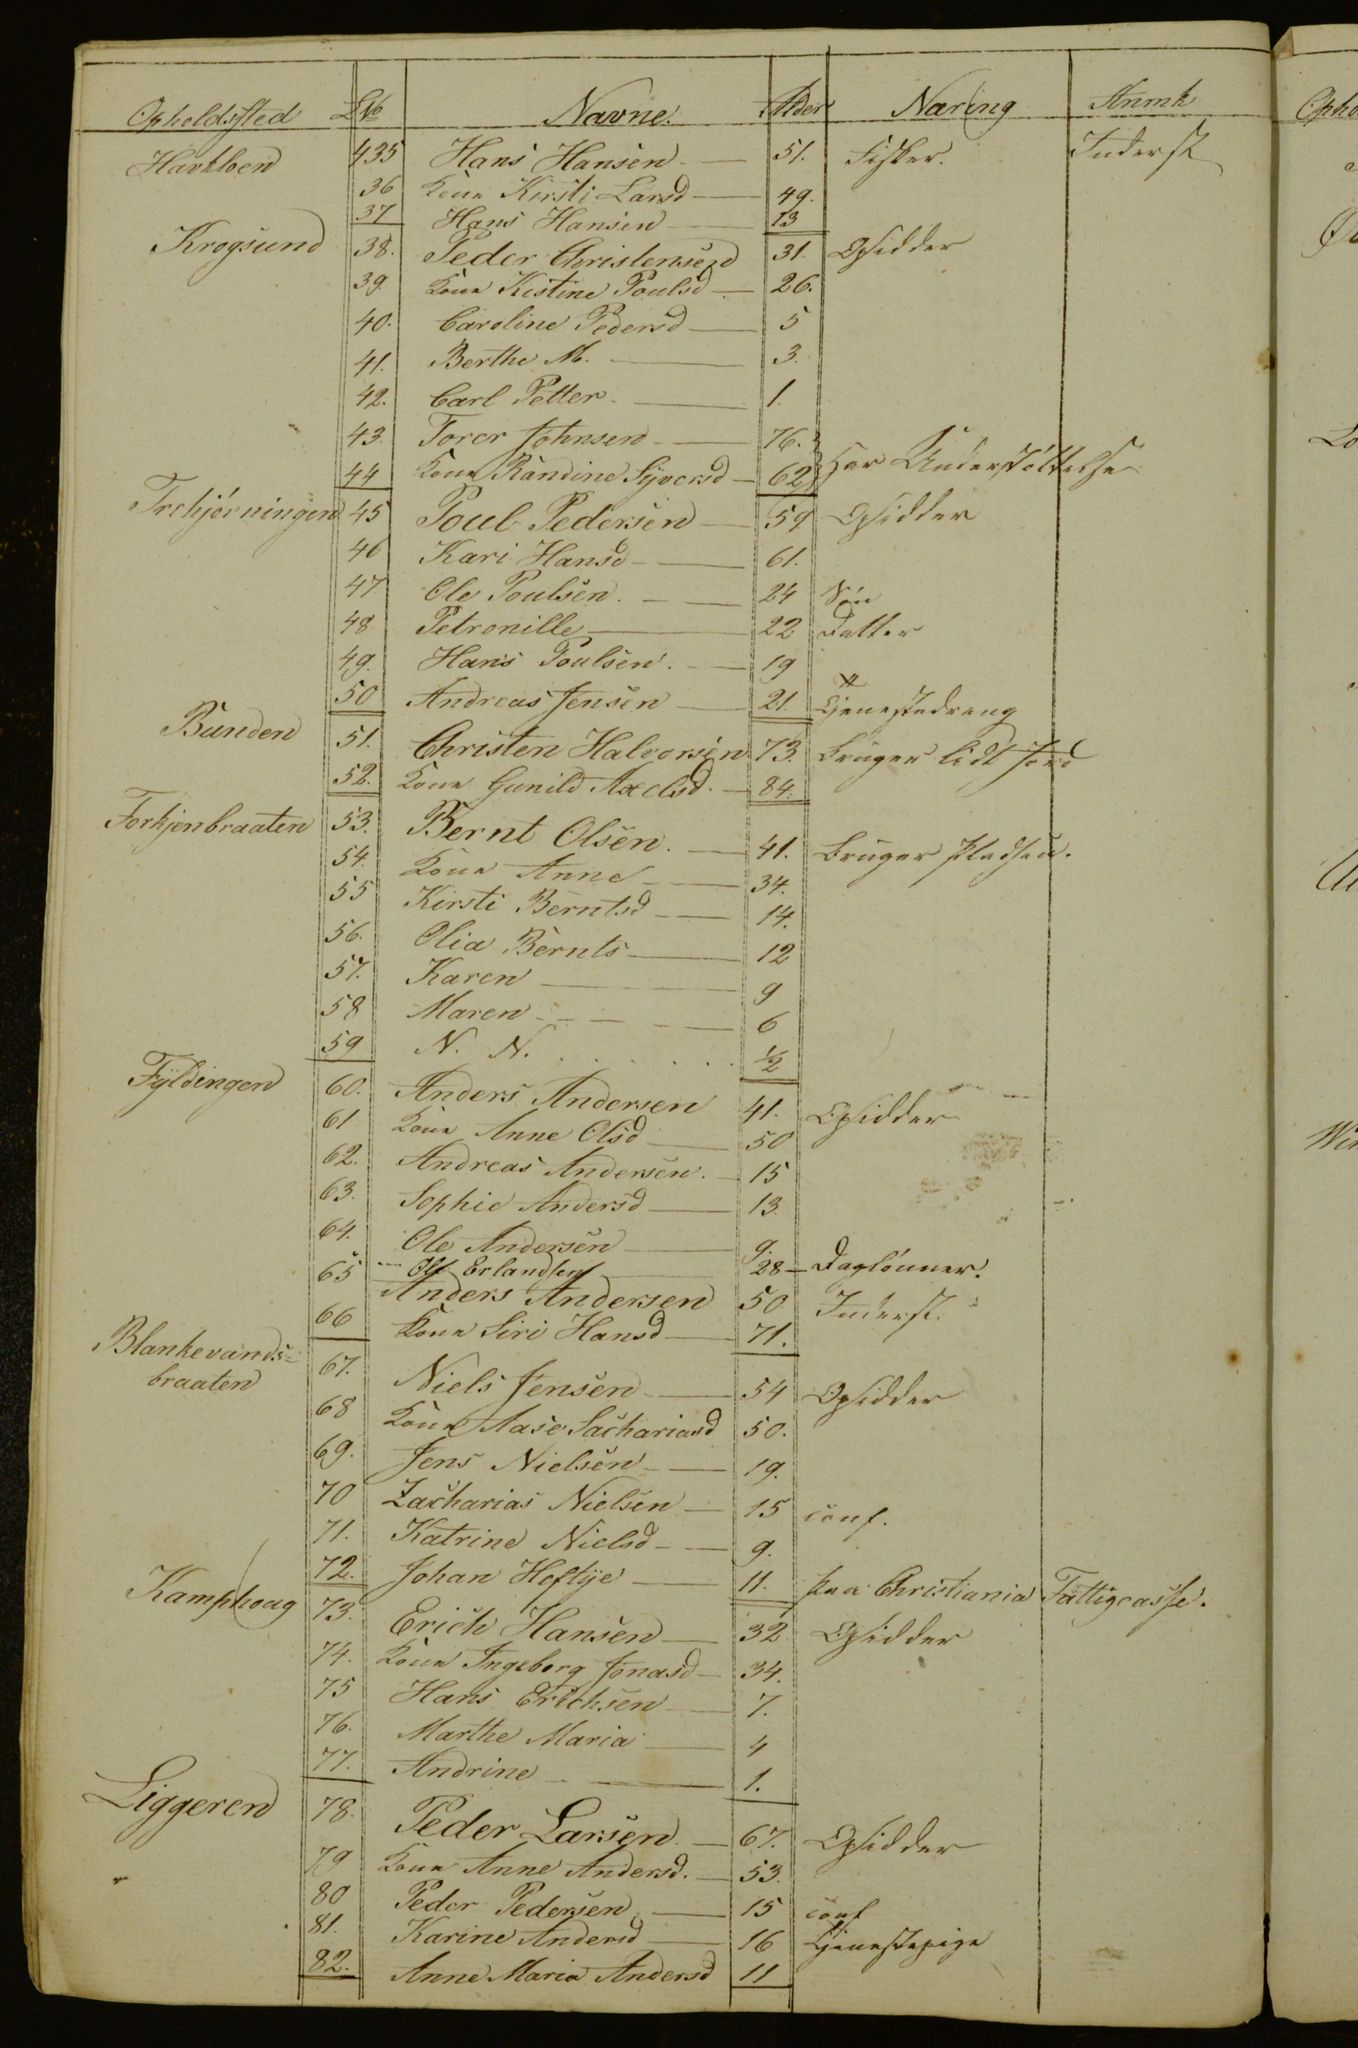 Opholdssted LNo Navne. Alder Næring Anmk
Havkloen 435 Hans Hansen 51. Fisker. Inderst
36 Kone Kirsti Larsd 49.
37 Hans Hansen 13
Krogsund 38. Peder Christensen 31. Opsidder
39. Kone Kistine Poulsd 26.
40. Caroline Pedersd 5
41. Berthe M. 3.
42. Carl Petter 1.
43. Torer Johnsen 76.
44 Kone Randine Syversd 62 Har Understøttelse
Trehjørningen 45 Poul Pedersen 59 Opsidder
46 Kari Hansd 61.
47 Ole Poulsen. 24 Søn
48 Petronille 22 Datter
49. Hans Poulsen. 19
50 Andreas Jensen 21. Tjenestedreng
Bunden 51. Christen Halvorsen 73. Bruger lidt Jord
52. Kone Gunild Axelsd. 84.
Torkjenbraaten 53. Bernt Olsen. 41. Bruger Pladsen.
54. Kone Anne 34.
55 Kirsti Berntsd 14.
56. Olia Bernts 12
57. Karen 9
58 Maren 6
59 N. N. 1/2
Fyldingen 60. Anders Andersen 41. Opsidder
61 Kone Anne Olsd 50
62. Andreas Andersen. 15
63. Sophie Andersd 13.
64. Ole Andersen 9.
Ole Erlandsen 28 Daglønner.
65 Anders Andersen 50 Inderst.
66 Kone Siri Hansd 71.
Blankevands=
braaten 67. Niels Jensen 54 Opsidder
68 Kone Aase Sachariasd 50.
69. Jens Nielsen 19.
70 Zacharias Nielsen 15 conf.
71. Katrine Nielsd 9.
72. Johan Heftye 11. paa Christiania Fattigcasse.
Kamphoug 73. Erich Hansen 32 Opsidder
74. Kone Ingeborg Jonasd 34.
75 Hans Erichsen 7.
76. Marthe Maria 4
77. Andrine 1.
Liggeren 78. Peder Larsen. 67. Opsidder
79 Kone Anne Andersd. 53.
80 Peder Pedersen. 15 conf
81. Karine Andersd 16 Tjenestepige
82. Anne Maria Andersd 11